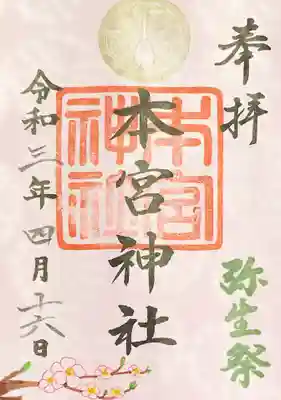 奉拝
弥生祭
本宮神社
本宮
神社
令和三年四月十六日